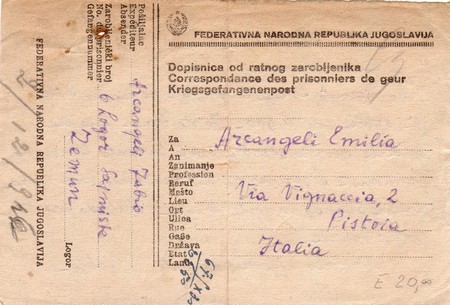 FEDERATIVNA NARODNA REPUBLIKA JUGOSLAVIJA
Dopisnica od ratnog zarobljenika
Correspondance des prisonniers de geur
Kriegsgefangenenpost
Za
A
An
Arcangeli Emilia
Zanimanje
Profession
Beruf
Mešto
Lieu
Ort
Via Vignaccia, 2
Ulica
Rue
Gaße
Pistoia
Država
Etat
Land
Italia
£ 20,00
Pošiljalac
Expéditeur
Absender
Arcangeli Fabio
Zarobljenički broj
No. du prisonnier
Gefangennummer
6 Logor Sajmište
Zemun
Logor
FEDERATIVNA NARODNA REPUBLIKA JUGOSLAVIJA